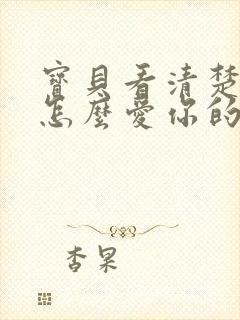 寶貝看清楚
怎麼愛你的
杏果